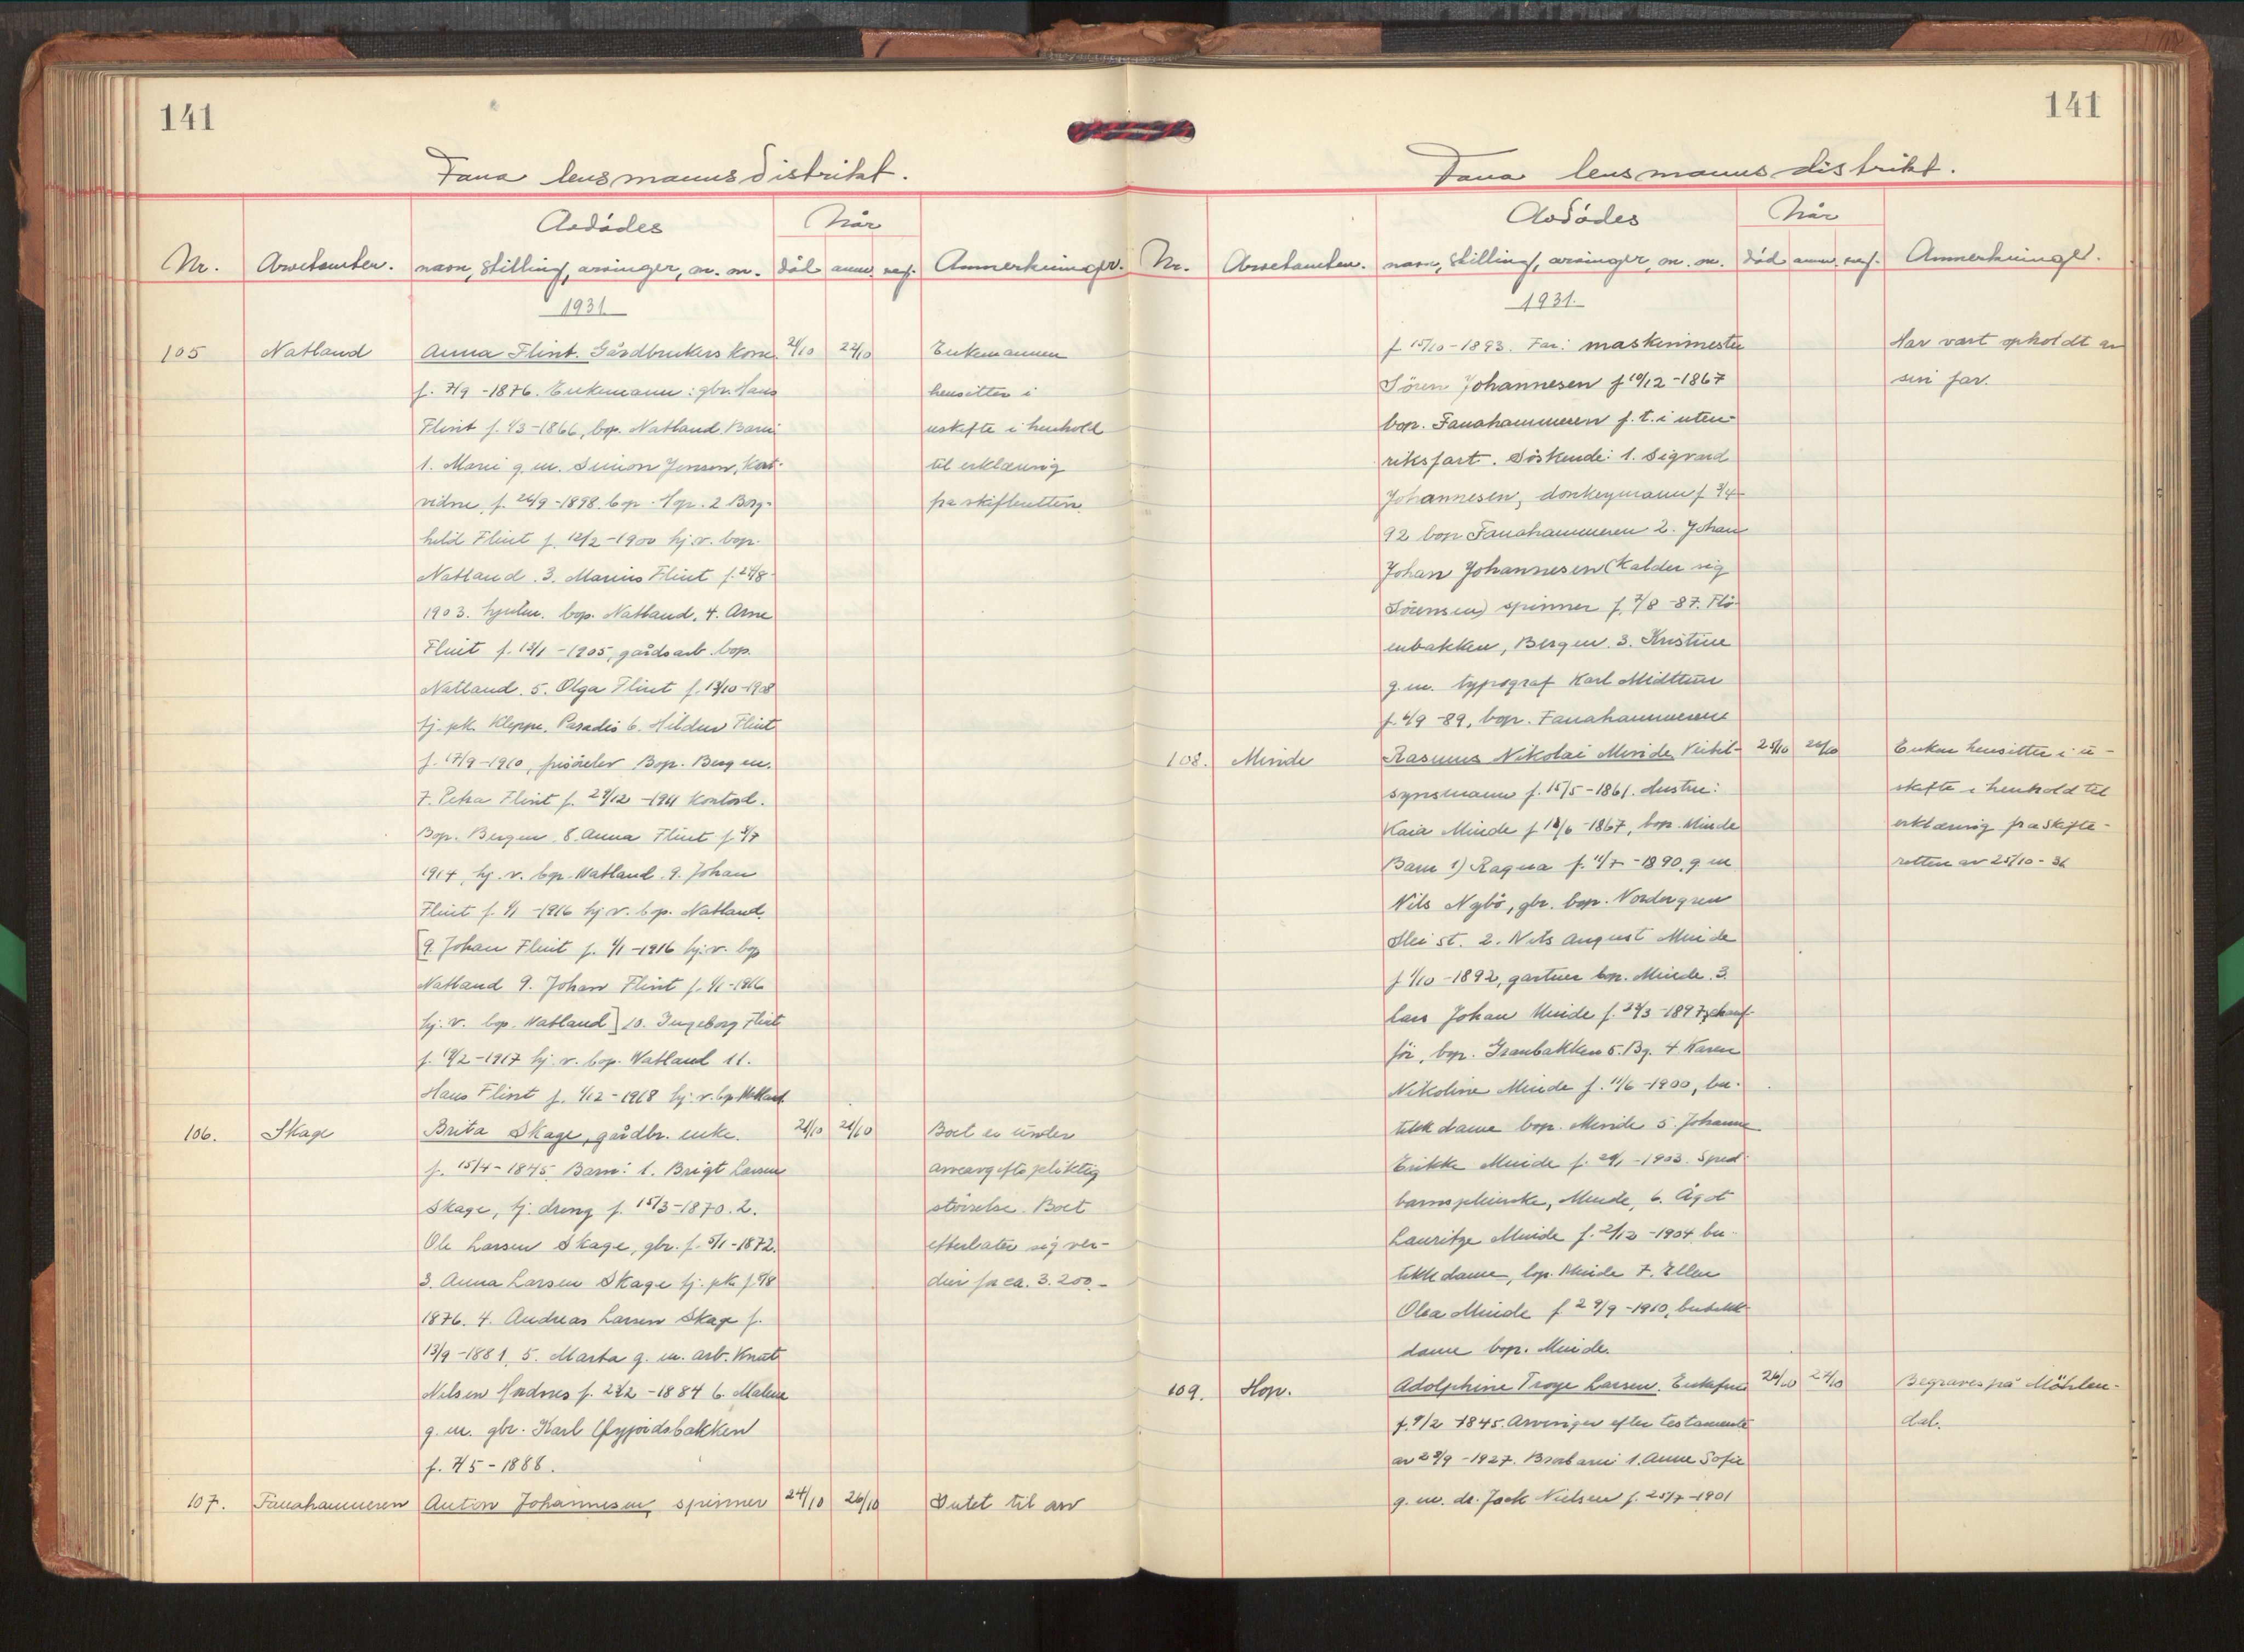 141
Fana lensmannsdistrikt.
Avdödes
Når
Nr. Arvetomten. navn, stilling, arvinger, m. m. död anm. reg. Anmerkninger.
1931
105 Natland Anna Flint. Gårdbrukers kone. 2/10 22/10 Enkemannen
f. 7/9 - 1876. Enkemann: gbr. Hans hensitter i
Flint f. 1/3 - 1866, bop. Natland. Barn: uskifte i henhold
1. Marie g. m. Simon Jensen, til erklæring
f. 26/9 - 1898. bop. Hop. 2 Borg- fra skifteretten.
hild Flint f. 12/2 - 1900 hj. v. bop.
Natland. 3. Marius Flint f.
1903. bop. Natland. 4. Arne
Flint f. 13/1 - 1905, gårdsarb. bop.
Natland. 5. Olga Flint f. 13/10 - 1908
tj. pk. Kleppe, Paradis 6. Flint
f. 17/9 - 1910, Bop. Bergen.
7. Petra Flint f. 29/12 - 1911
Bop. Bergen. 8. Anna Flint f.
1914, hj. v. bop. Natland. 9. Johan
Flint f. 1/1 - 1916 hj. v. bop. Natland.
[9. Johan Flint f. 1/1 - 1916 hj. v. bop
Natland 9. Johan Flint f. 1/1 - 1916
hj. v. bop. Natland] 10. Ingeborg Flint
f. 19/2 - 1917 hj. v. bop. Natland 11.
Hans Flint f. 1/12 - 1918 hj. v. bop. Natland.
106. Skage Brita Skage, gårdbr. enke. 21/10 21/10 Boet er under
f. 15/4 - 1845. Barn: 1. Brigt Larsen arveavgiftspliktig
Skage, tj. dreng f. 15/3 - 1870. 2. störrelse. Boet
Ole Larsen Skage, gbr. f. 5/1 - 1872. efterlater sig ver-
3. Anna Larsen Skage tj. pk. f. dier fra ca. 3.200.-
1876. 4. Andreas Larsen Skage f.
13/9 - 1881. 5. Marta g. m. arb. Knut
Nilsen f. 23/2 - 1884 6. Malene
g. m. gbr. Karl
f. 7/5 - 1888.
107. Fanahammeren Anton Johannesen, spinner 24/10 26/10 Intet til arv
141
Fana lensmannsdistrikt.
Avdödes
Når
Nr. Arvetomten. navn, stilling, arvinger, m. m. död anm. reg. Anmerkninger.
1931.
f. 15/10 - 1893. Far: maskinmester Har vært opholdt av
Sören Johannesen f 10/12 - 1867 sin far.
bop. Fanahammeren f. t. i uten-
riksfart. Söskende: 1. Sigvard
Johannesen, donkeymann f 3/4
92 bop Fanahammeren 2. Johan
Johan Johannesen (Kalder sig
Sörensen) spinner f. 7/8 - 87. Flö-
enbakken, Bergen. 3. Kristine
g. m. typograf Karl Midttun
f. 4/9 - 89, bop. Fanahammeren
108. Minde Rasmus Nikolai Minde, Veibil- 25/10 26/10 Enken hensitter i u-
synsmann f. 15/5 - 1861. Hustru: skifte i henhold til
Kaia Minde f 18/6 - 1867, bop. Minde erklæring fra skifte-
Barn 1) Ragna f. 11/7 - 1890, g. m retten av 25/10 - 31
Nils Nybö, gbr. bop.
st. 2. Nils August Minde
f 1/10 - 1892, gartner bop. Minde. 3.
Lars Johan Minde f. 23/3 - 1897, chauf-
för, bop. 5. Bg. 4 Karen
Nikoline Minde f. 11/6 - 1900, bu-
tikkdame bop. Minde 5. Johanne
Erikke Minde f. - 1903. Sped-
barnspleierske, Minde, 6. Ågot
Lauritze Minde f. 2/12 - 1904 bu-
tikkdame, bop. Minde 7. Ellen
Olea Minde f 29/9 - 1910, butikk-
dame bop. Minde.
109. Hop. Adolphine Troye Larsen. Enkefrue 26/10 27/10 Begraves på Möhlen-
f. 9/2 1845. Arvinger efter testamente dal.
av 28/9 - 1927. Brorbarn 1. Anne Sofie
g. m. dr. Jack Nielsen f. 25/7 - 1901